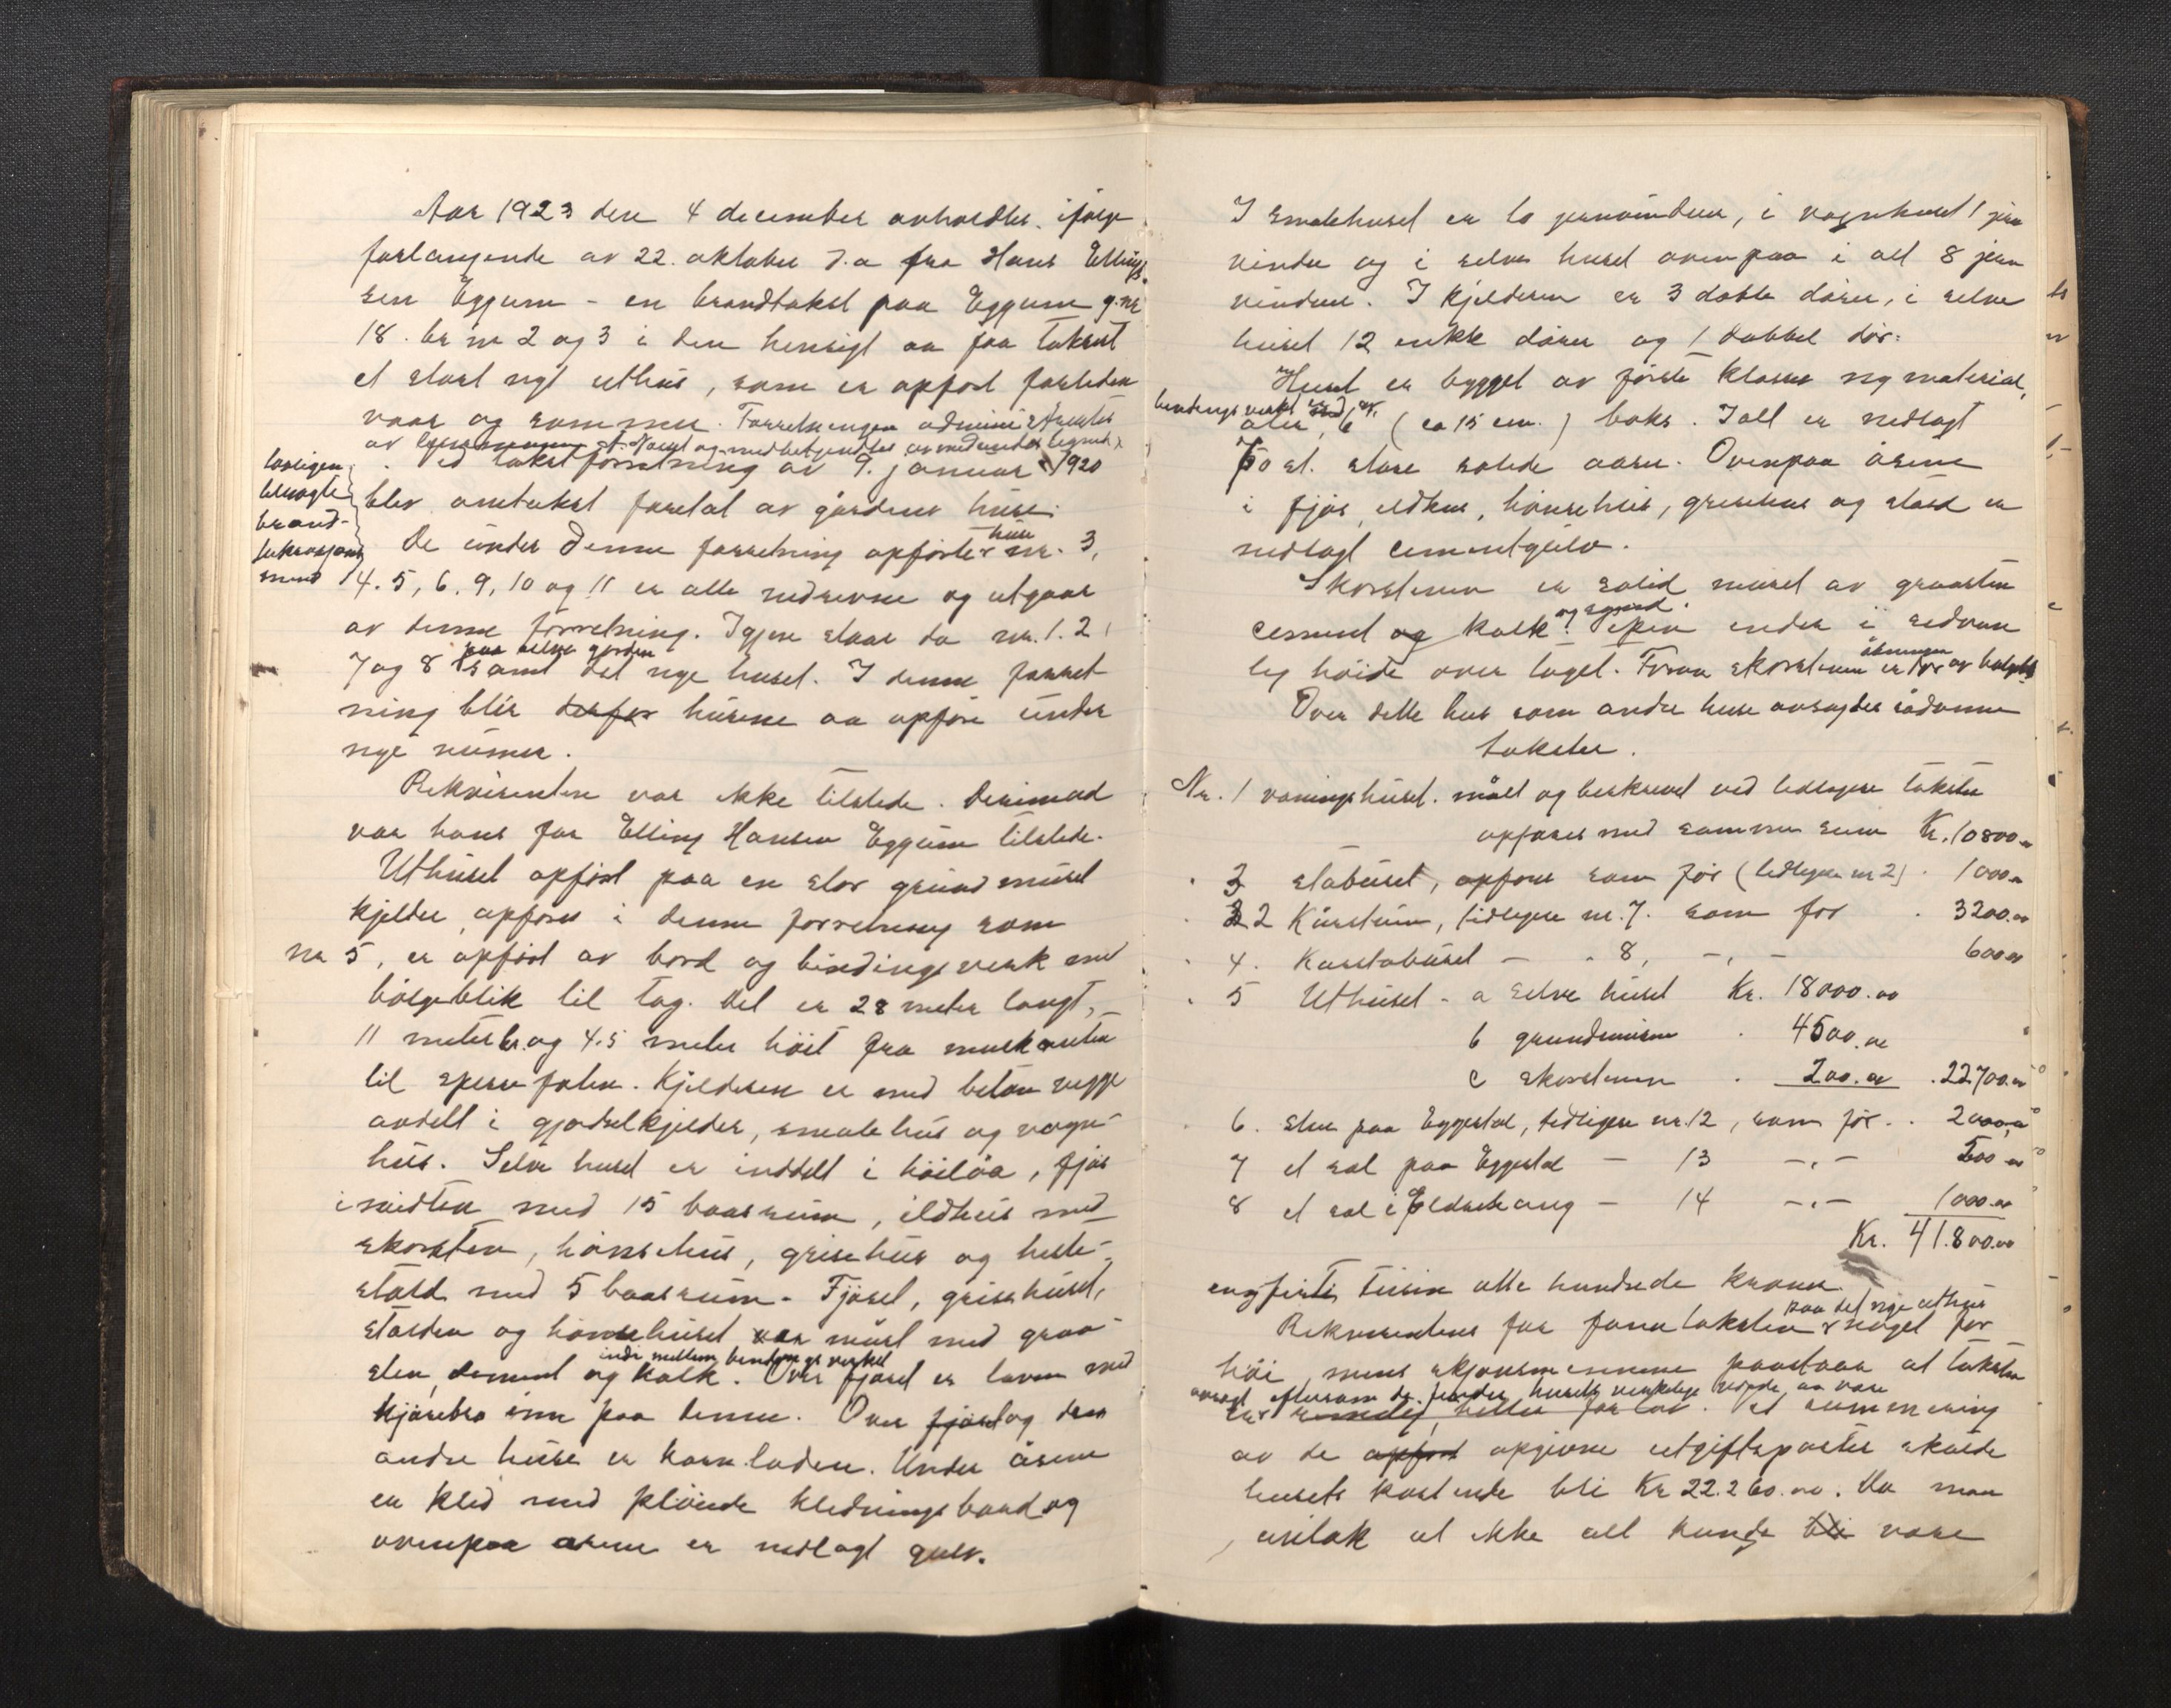 Aar 1923 den 4 december avholdtes ifølge
forlangende av 22. oktober d.a fra Hans Ellings
sen Eggum - en brandtakst paa Eggum g.nr
18. br nr 2 og 3 i den hensigt aa faa takset
et stort nyt uthus, som er opført forleden
vaar og sommer. Forretningen administrertes
av lensmannen og medbetjentes av undertegnede
Ved takstforretning av 9. januar 1920
lovligen
blev omtakst foretat av gårdens huse.
brand-
De under denne forretning opførte hus nr. 3,
mend
4. 5, 6. 9, 10 og 11 er alle nedrevne og utgaar
av denne forretning. Igjen staar da nr. 1. 2
paa selve garden
7 og 8 samt det nye huset. I denne forret
ning blir derfor husene aa opføre under
nye numer.
Rekvirenten var ikke tilstede. Derimod
var hans far Elling Hansen Eggum tilstede.
Uthuset opført paa en stor grundmuret
kjelder, opføres i denne forretning som
nr 5, er opført av bord og bindingsverk med
bølgeblik til tag. Det er 28 meter langt,
11 meter br. og 4.5 meter høit fra murkanten
til sperrefoten. Kjelderen er med beton vegge
avdelt i gjødselkjelder, smalehus og vogn-
hus. Selve huset er inddelt i høiløa, fjøs
i midten med 15 baasrum, ildhus med
skorsten, hønsehus, grisehus og heste-
stald med 5 baasrum. Fjøset, grisehuset,
stalden og hønsehuset er muret med graa-
inde mellem bindingsverket
sten, cement og kalk. Over fjøset er laaven med
kjørebro inn paa denne. Over fjøset og den
andre huse er kornladen. Under åsene
er kled med pløiede kledningsbord og
ovenpaa åsene er nedlagt gulv.
I smalehuset er to jernvinduer, i vognhuset 1 jern
vindu og i selve huset ovenpaa i alt 8 jern
vinduer. I kjelderen er 3 doble dører, i selve
huset 12 enkle dører og 1 dobbel dør.
Huset er bygget av første klasses ny material,
bindingsverket er av
6" (ca 15 cm.) boks. Ialt er nedlagt
50 st. store solide aaser. Ovenpaa åsene
i fjøs, ildhus, hønsehus, grisehus og stald er
nedlagt cementgulv.
Skorstenen er solid muret av graasten
cement og kalk og sand. Pipen ender i sedvan
lig høide over taget. Foran skorstenen åbninger er
Over dette hus som andre huse avsagdes sådanne
takster.
Nr. 1 vaaningshuset. målt og beskrevet ved tidligere takster
opføres med samme sum Kr. 10800.00
3 staburet, opføres som før (tidligere nr 2) . 1000.00
2 Kårstuen, tidligere nr. 7. som før . 3200.00
4. Kaarstaburet - . 8, - . - 600.00
5 Uthuset - a selve huset Kr. 18000.00
b grundmuren . 4500.00
c skorstenen . 200.00 . 22700.00
6. stue paa Eggestøl, tidligere nr. 12, som før . . 2000.00
7 et sel paa Eggestøl - 13 - . - 500.00
8 et sel i - 14 - . - 1000.00
Kr. 41.800.00
engførti tusin otte hundrede kroner.
paa det nye uthus
Rekvirentens far fann taksten noget for
høi mens skjønsmennene paastaar at taksten
avsagt eftersom de fandt husets verkelige verde aa være
heller for lav. Ved summering
av de opført opgivne utgiftsposter skulde
husets kostende bli Kr 22.260.00. Da man
antok at ikke alt kunde bli være